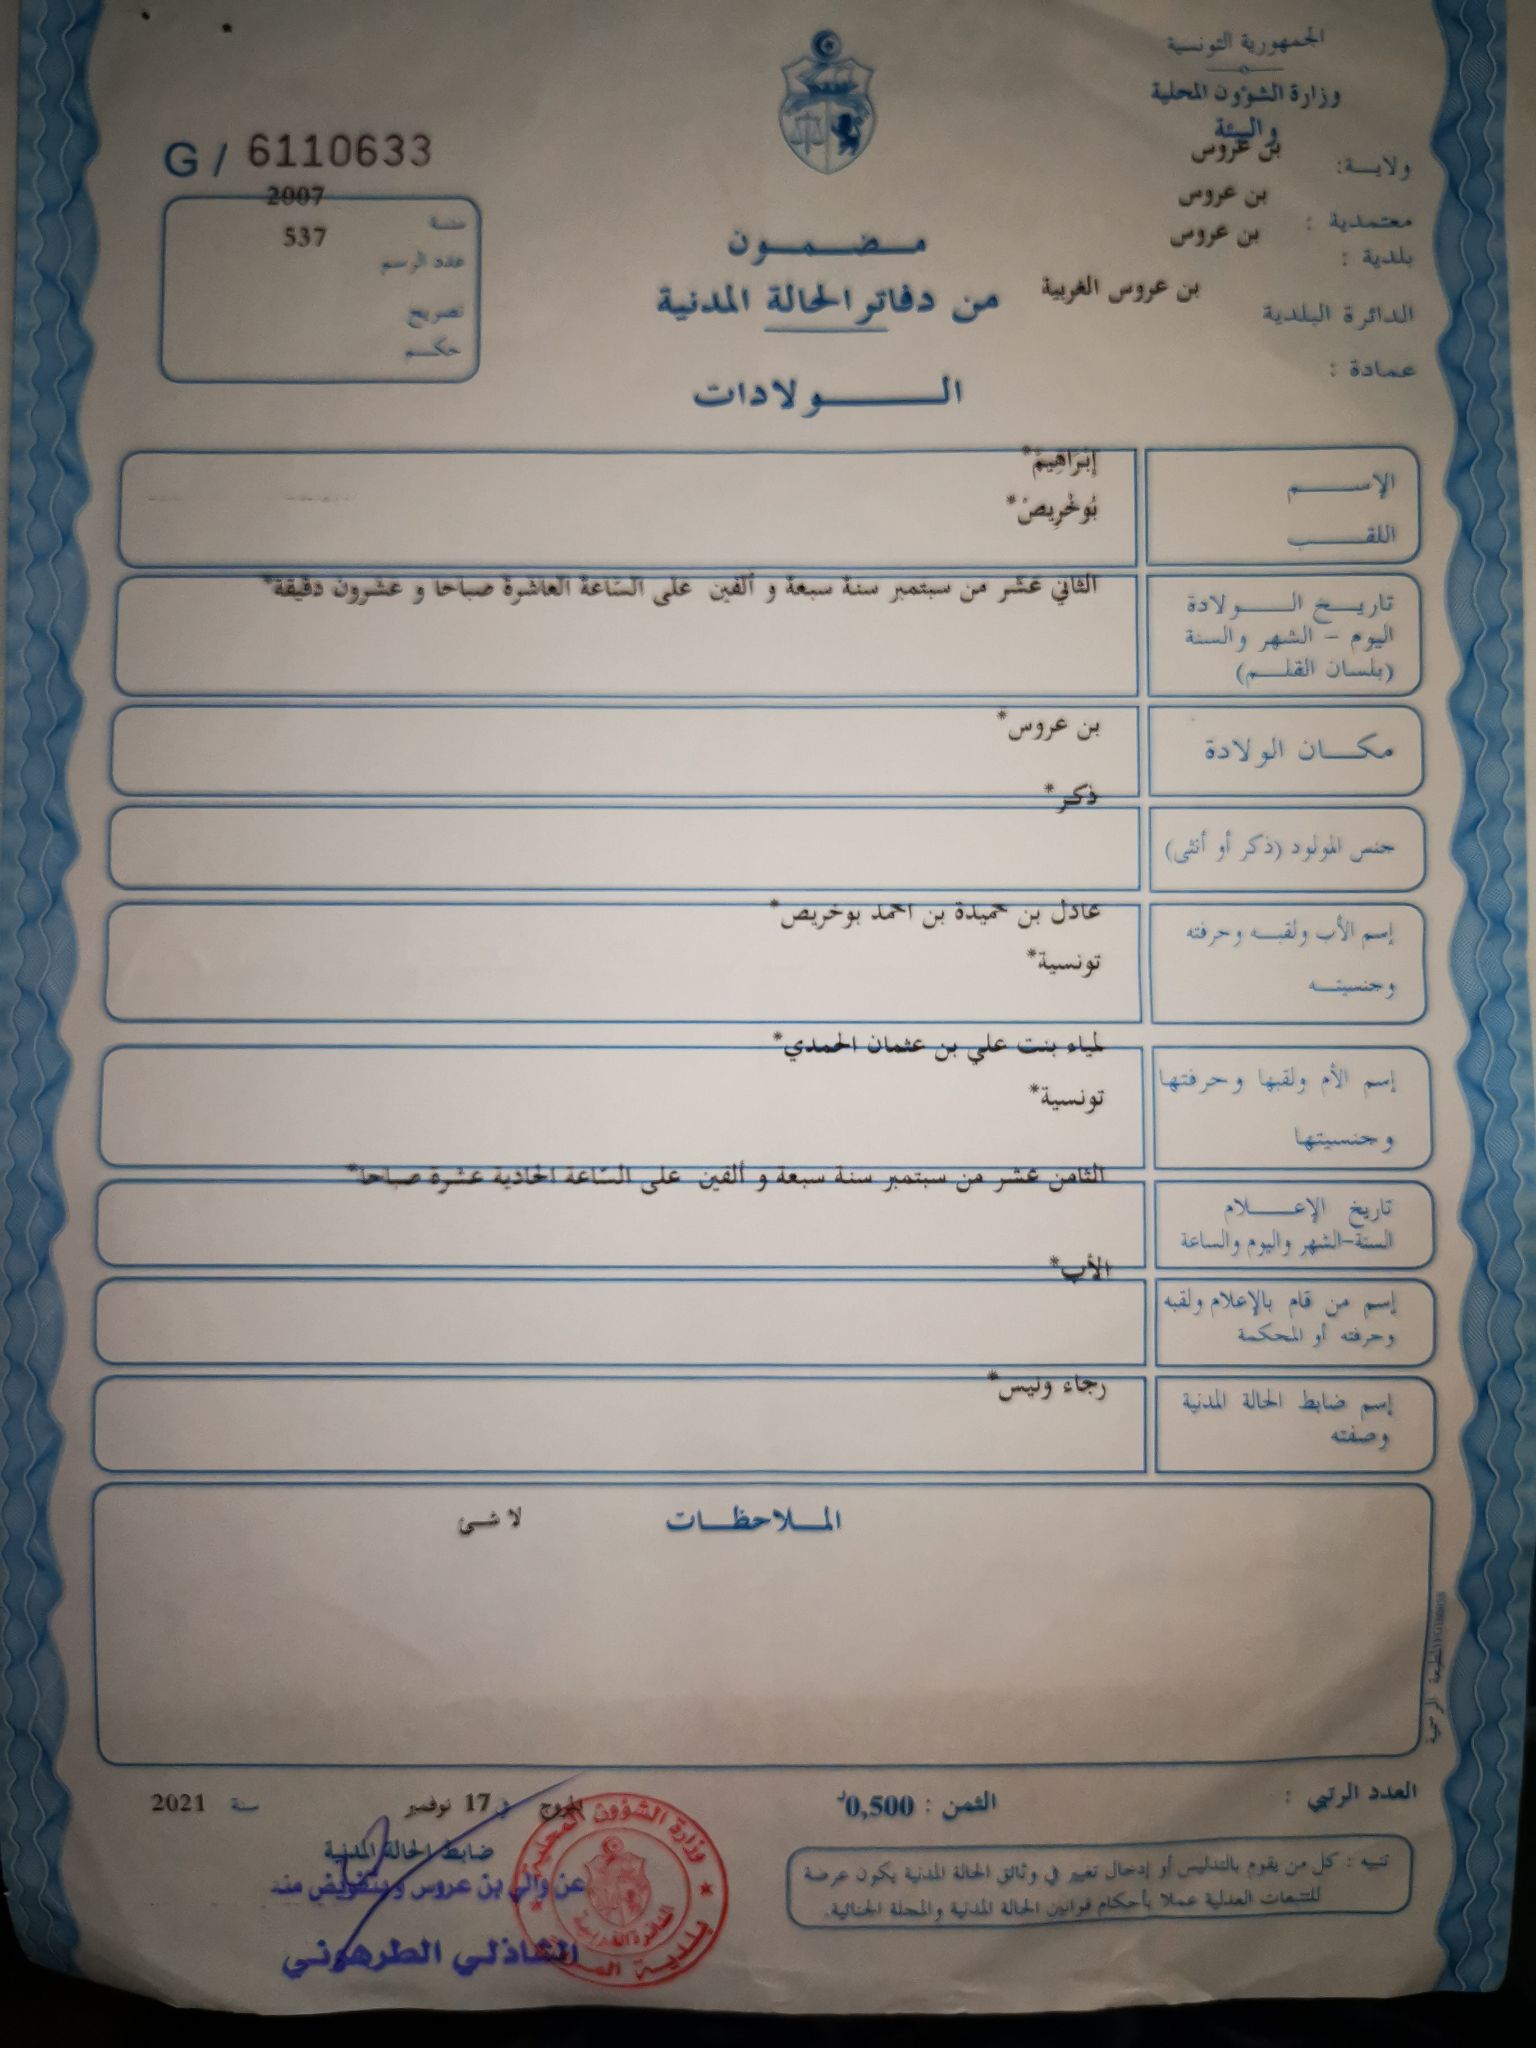 الجمهورية التونسية
وزارة الشؤون المحلية
والبيئة
ولاية: بن عروس
معتمدية : بن عروس
بلدية : بن عروس
الدائرة البلدية بن عروس الغربية
عمادة :
G / 6110633
سنة 2007
عدد الرسم 537
تصريح
حكم
مضمون
من دفاتر الحالة المدنية
الولادات
الإسم إِبْرَاهِيمْ*
اللقب بُوخْرِيصْ*
تاريخ الولادة الثاني عشر من سبتمبر سنة سبعة و ألفين على السّاعة العاشرة صباحا و عشرون دقيقة*
اليوم - الشهر والسنة
(بلسان القلم)
مكان الولادة بن عروس*
جنس المولود (ذكر أو أنثى) ذكر*
إسم الأب ولقبه وحرفته عادل بن حميدة بن احمد بوخريص*
وجنسيته تونسية*
إسم الأم ولقبها وحرفتها لمياء بنت علي بن عثمان الحمدي*
وجنسيتها تونسية*
تاريخ الإعلام الثامن عشر من سبتمبر سنة سبعة و ألفين على السّاعة الحادية عشرة صباحا*
السنة-الشهر واليوم والساعة
إسم من قام بالإعلام ولقبه الأب*
وحرفته أو المحكمة
إسم ضابط الحالة المدنية رجاء ونيس*
وصفته
الملاحظات لا شئ
المطبعة الرسمية
العدد الرتبي :
الثمن : 0,500د
المروج في 17 نوفمبر سنة 2021
ضابط الحالة المدنية
عن والي بن عروس وبتفويض منه
الشاذلي الطرهوني
وزارة الشؤون المحلية
بلدية
تنبيه : كل من يقوم بالتدليس أو إدخال تغيير في وثائق الحالة المدنية يكون عرضة
للتتبعات العدلية عملا بأحكام قوانين الحالة المدنية والمجلة الجنائية.